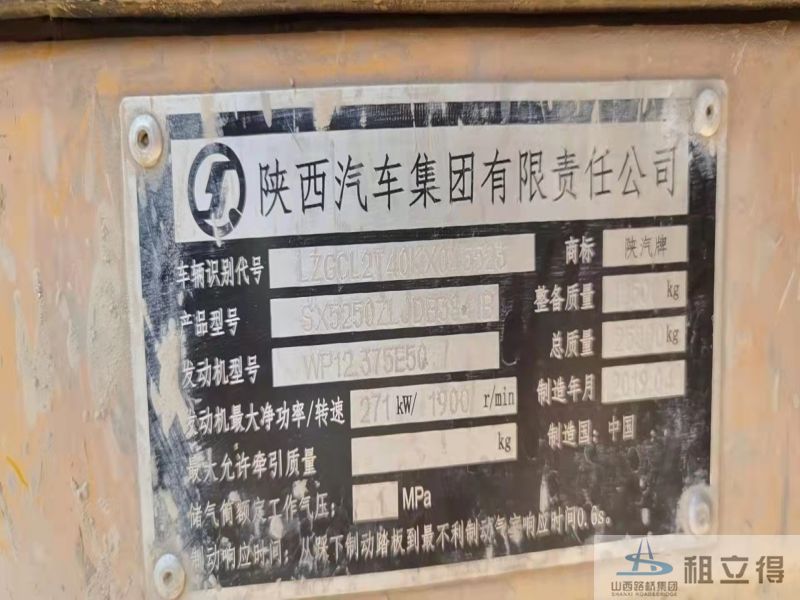 陕西汽车集团有限责任公司
车辆识别代号
商标 陕汽牌
产品型号
整备质量 kg
发动机型号 WP12.375E50
总质量 kg
发动机最大净功率/转速 271 kW/ 1900 r/min
制造年月 2019.04
最大允许牵引质量 kg
制造国：中国
储气筒额定工作气压： 1 MPa
制动响应时间：从踩下制动踏板到最不利制动气室响应时间0.6s。
山西路桥集团
SHANXI ROAD&BRIDGE
租立得